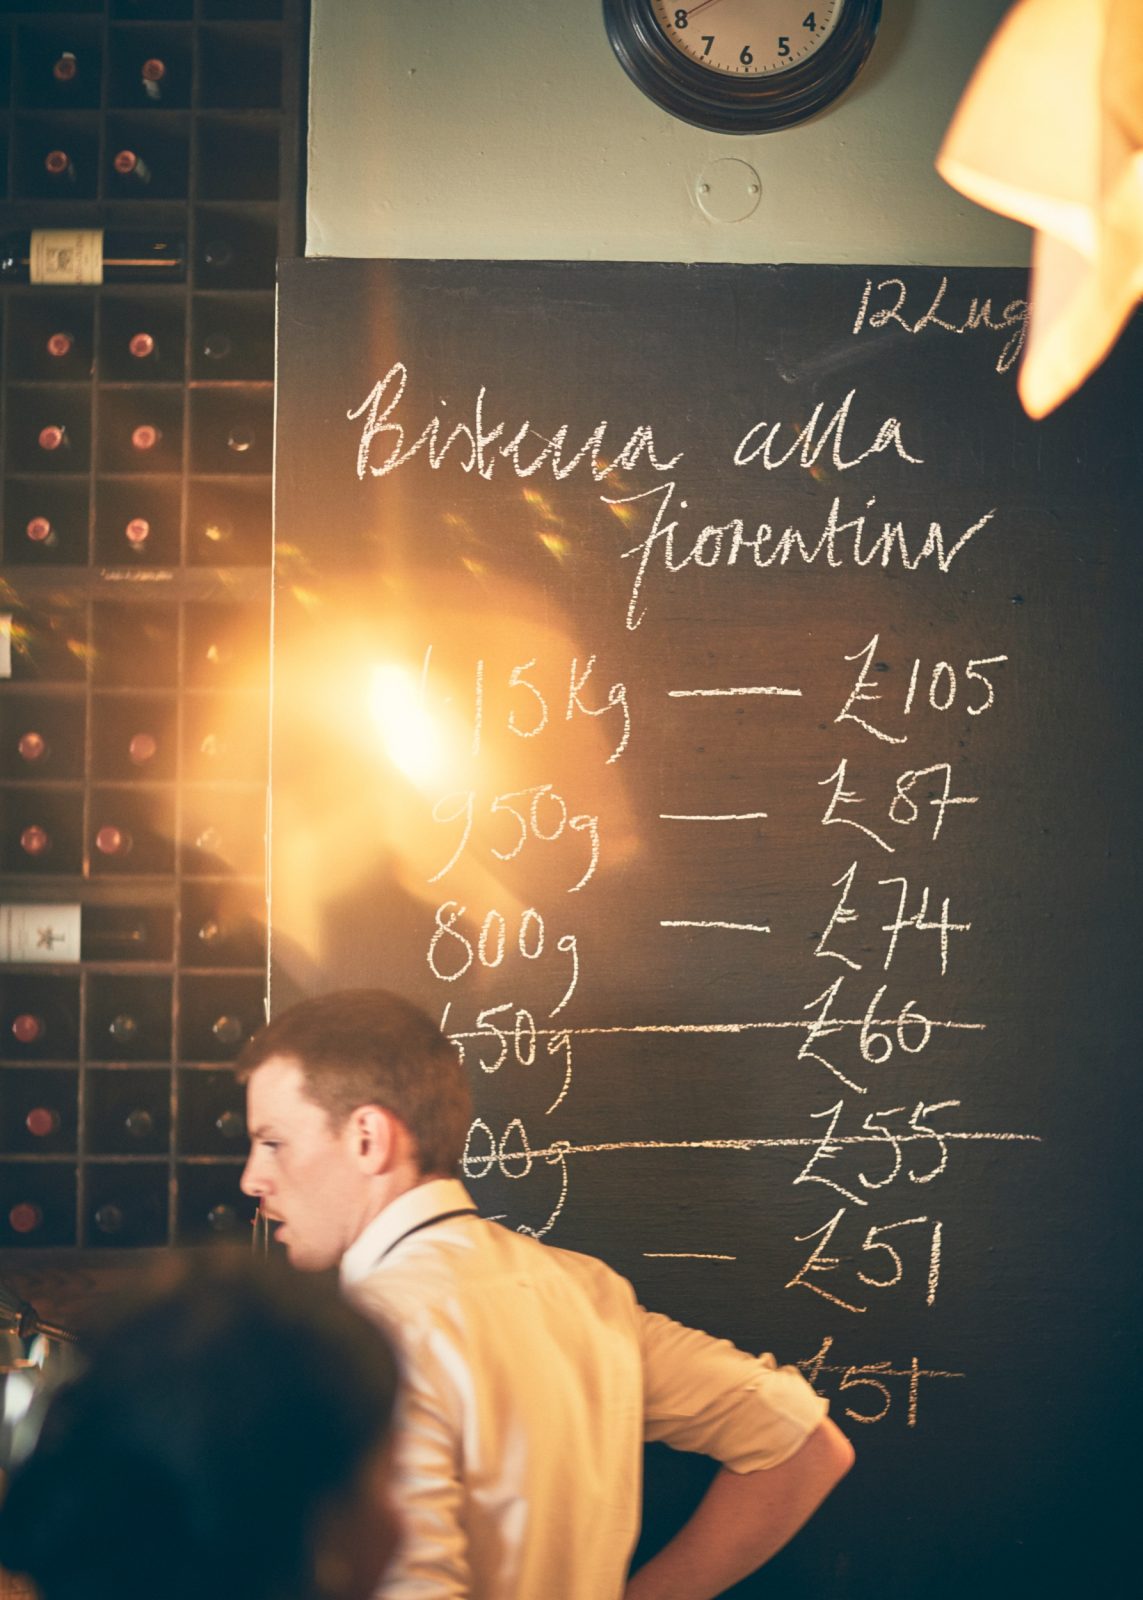 8 7 6 5 4
12 Lug
Bistecca alla
Fiorentina
1.15Kg — £105
950g — £87
800g — £74
650g — £60
00g — £55
— £51
£51